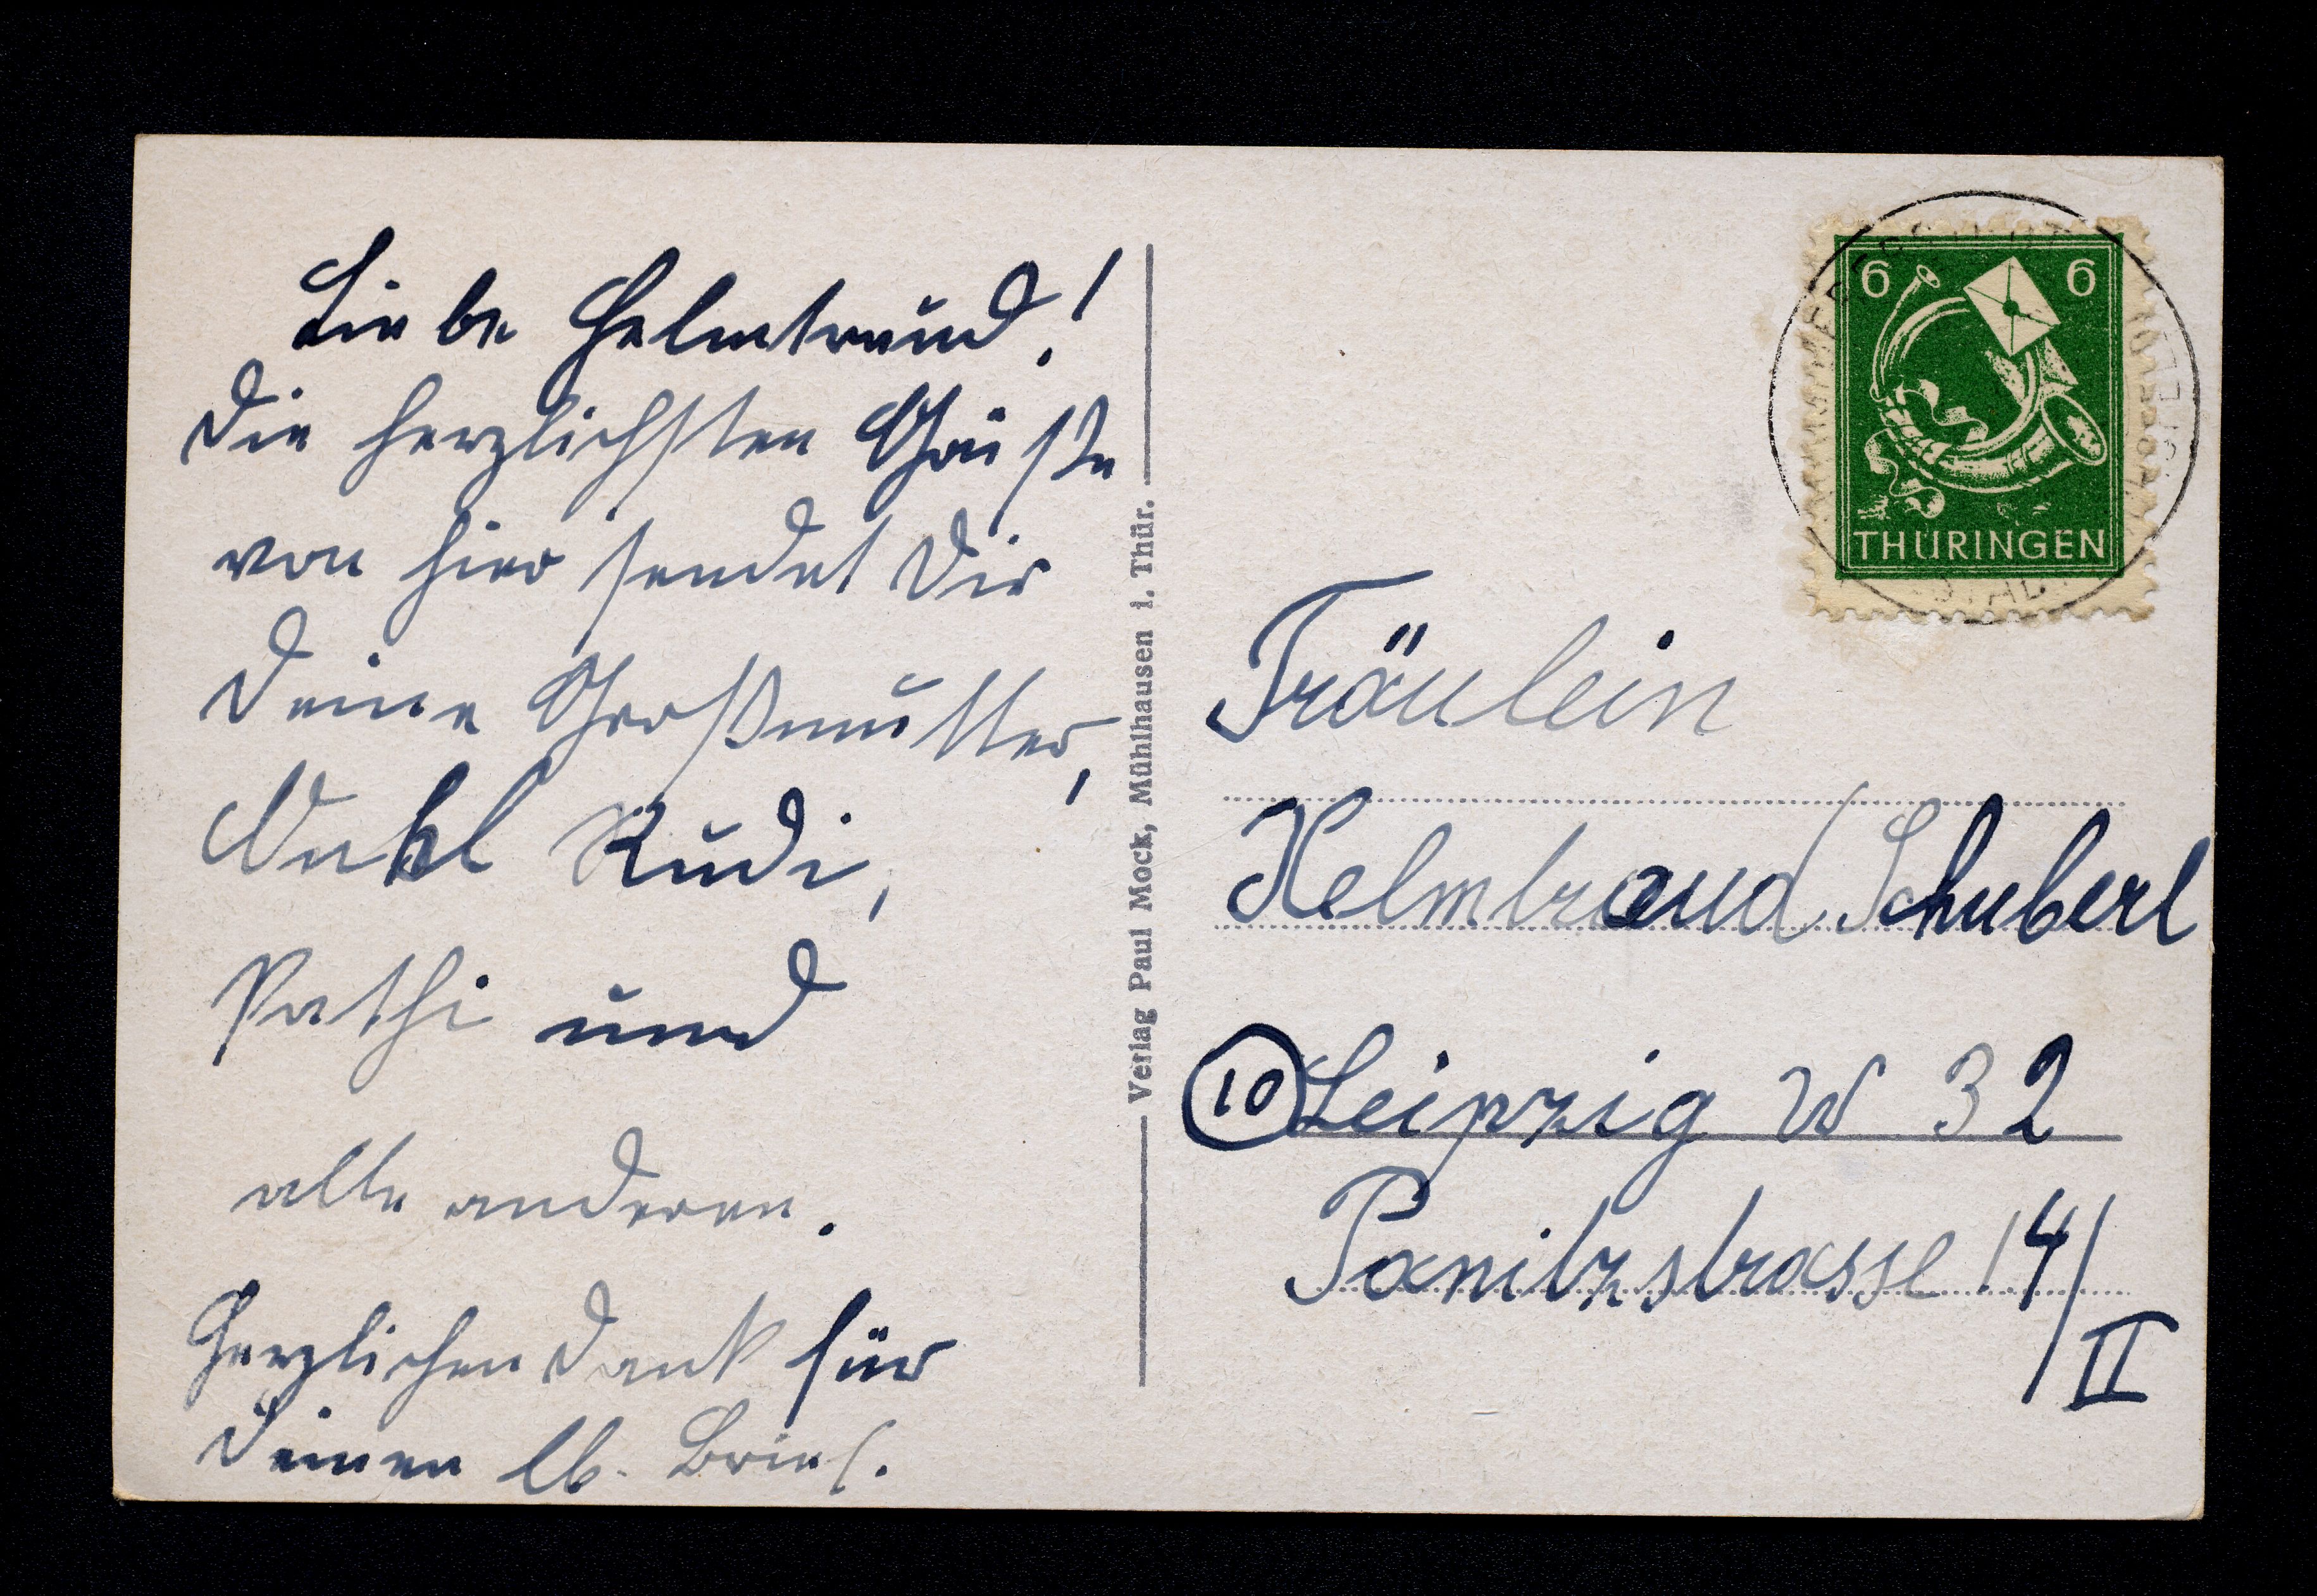 Liebe Helmtraud!
Die herzlichsten Grüße
von hier sendet Dir
Deine Großmutter,
Onkel Rudi,
Pathi und
alle anderen.
Herzlichen Dank für
Deinen lb. Brief.
Verlag Paul Mock, Mühlhausen i. Thür.
6 6
THÜRINGEN
Fräulein
Helmtraud Schubert
10 Leipzig W 32
Panitzstrasse 14/
II